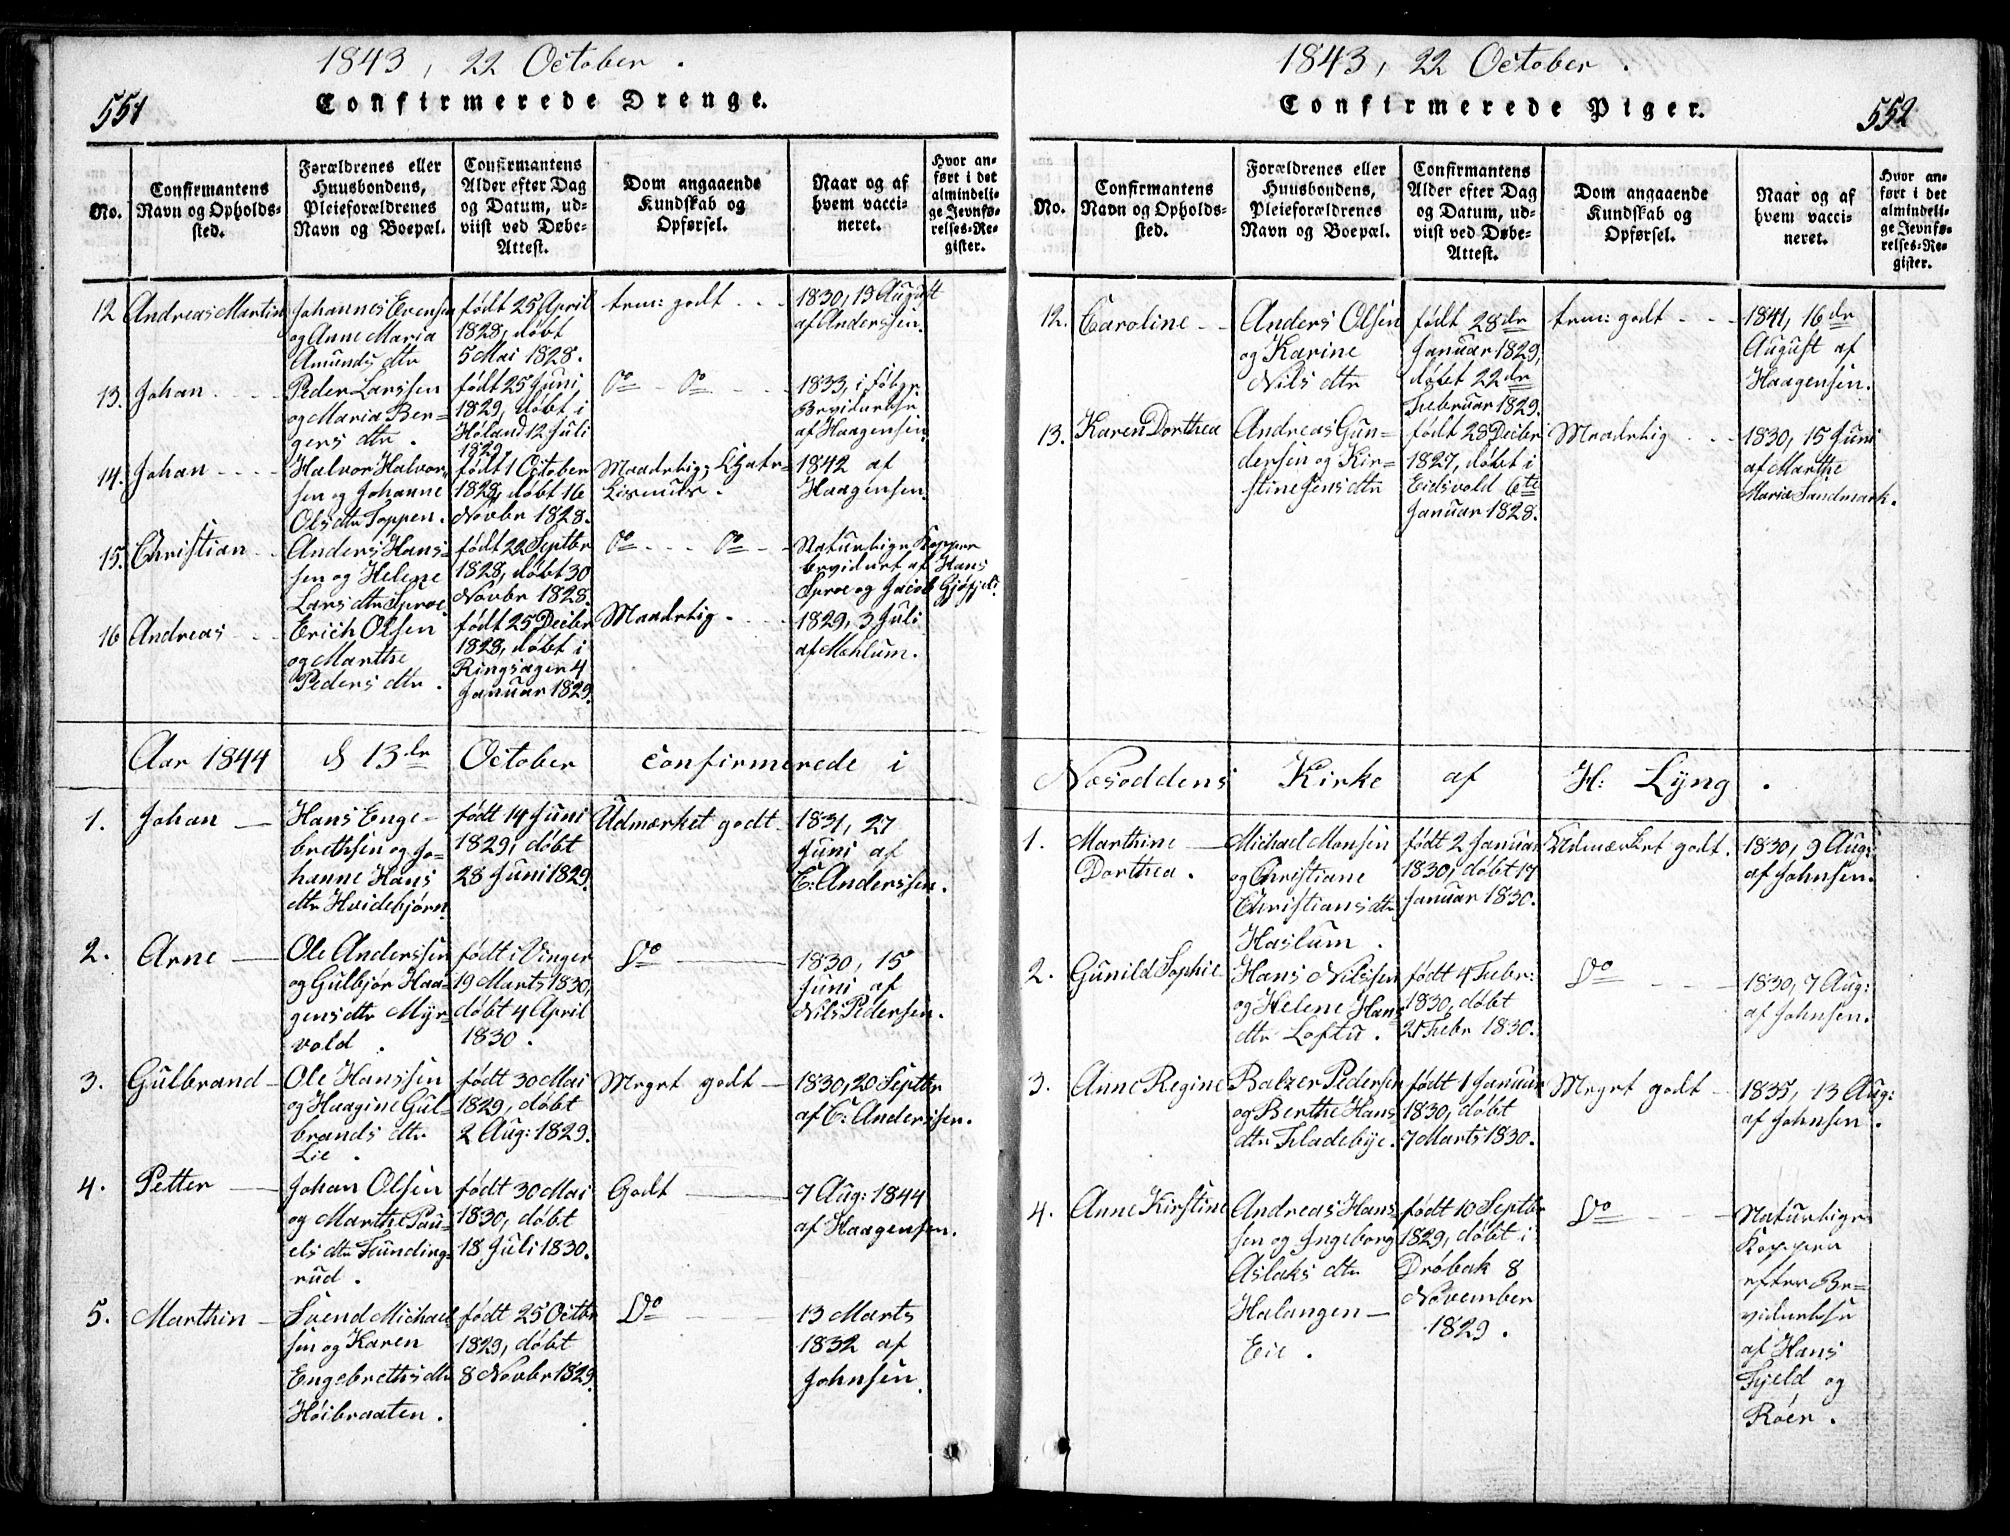 1843, 22 October.
551
Confirmerede Drenge.
No.
Confirmantens Navn og Opholds-sted.
Forældrenes eller Huusbondens, Pleieforældrenes Navn og Boepæl.
Confirmantens Alder efter Dag og Datum, ud-viist ved Døbe-Attest.
Dom angaaende Kundskab og Opførsel.
Naar og af hvem vacci-neret.
Hvor an-ført i det almindeli-ge Jevnfø-relses-Re-gister.
12
Andreas Martin
Johannes Evensen
og Anne Maria
Amunds dtr
født 25 April
1828, døbt
5 Mai 1828.
tem: godt
1830, 19 August
af Anderssen.
13.
Johan
Peder Larssen
og Maria Ber-
gers dtr.
født 25 Juni,
1829, døbt i
Høland 12 Juli
1829.
Do Do
1833, i følge
af Haagensen.
14.
Johan
Halvor Halvor-
sen og Johanne
Ols dtr Toppen.
født 1 October
1828, døbt 16
Novbr 1828.
Maadelig
1842 af
Haagensen.
15.
Christian
Anders Hans-
sen og Helene
Lars dtr Sproe.
født 22 Septbr
1828, døbt 30
Novbr 1828.
Do Do
Naturlige Kopper
bevidnet af Hans
Sproe og Jacob
16
Andreas
Erich Olsen
og Marthe
Peders dtr.
født 25 Decbr
1828, døbt i
Ringsager 4
Januar 1829.
Maadelig.
1829, 3 Juli
af Mehlum.
Aar 1844 d 13de October confirmerede i
1.
Johan
Hans Enge-
brethsen og Jo-
hanne Hans
dtr Hvidebjørn.
født 14 Juni
1829, døbt
28 Juni 1829.
Udmærket godt
1831, 27
Juni af
C: Anderssen.
2.
Arne
Ole Anderssen
og Gulbjør Haa-
gens dtr Myr-
vold.
født i Vinger
19 Marts 1830,
døbt 4 April
1830.
Do
1830, 15
Juni af
Nils Pedersen.
3.
Gulbrand
Ole Hanssen
og Haagine Gul-
brands dtr
Lie.
født 30 Mai
1829, døbt
2 Aug: 1829.
Meget godt
1830, 20 Septbr
af C: Anderssen.
4.
Petter
Johan Olsen
og Marthe Pau-
els dtr Funding-
rud.
født 30 Mai
1830, døbt
18 Juli 1830.
Godt
7 Aug: 1844
af Haagensen.
5.
Marthin
Svend Michael-
sen og Karen
Engebreths dtr
Høibraaten.
født 25 Octbr
1829, døbt
8 Novbr 1829.
Do
13 Marts
1832 af
Johnsen.
1843, 22 October.
Confirmerede Piger.
552
No.
Confirmantens Navn og Opholds-sted.
Forældrenes eller Huusbondens, Pleieforældrenes Navn og Boepæl.
Confirmantens Alder efter Dag og Datum, ud-viist ved Døbe-Attest.
Dom angaaende Kundskab og Opførsel.
Naar og af hvem vacci-neret.
Hvor an-ført i det almindeli-ge Jevnfø-relses-Re-gister.
12.
Caroline
Anders Olsen
og Karine
Nils dtr
født 28de
Januar 1829,
døbt 22de
Februar 1829.
tem: godt
1841, 16de
August af
Haagensen.
13.
Karen Dorthea
Andreas Gun-
dersen og Kir-
stine Jens dtr
født 28 Decbr
1827, døbt i
Eidsvold 6te
Januar 1828.
Maadelig
1830, 15 Juni
af Marthe
Maria Sandmark.
Næsoddens Kirke af H: Lyng.
1.
Marthine
Dorthea.
Michael Monsen
og Christiane
Christians dtr
Haslum.
født 2 Januar
1830, døbt 17
Januar 1830.
Udmærket godt.
1830, 9 Aug:
af Johnsen.
2.
Gunild Sophie
Hans Nilssen
og Helene Hans
dtr Loftu.
født 4 Febr:
1830, døbt
21 Febr 1830.
Do
1830, 7 Aug:
af Johnsen.
3.
Anne Regine
Balzer Pedersen
og Berthe Hans
dtr Fladebye.
født 1 Januar
1830, døbt
7 Marts 1830.
Meget godt
1835, 13 Aug:
af Johnsen.
4.
Anne Kirstine
Andreas Hans-
sen og Ingeborg
Aslaks dtr
Halangen
Eie.
født 10 Septbr
1829, døbt i
Drøbak 8
November
1829.
Do
Naturlige
Kopper
efter Be-
vidnelse
af Hans
Fjeld og
Röer.